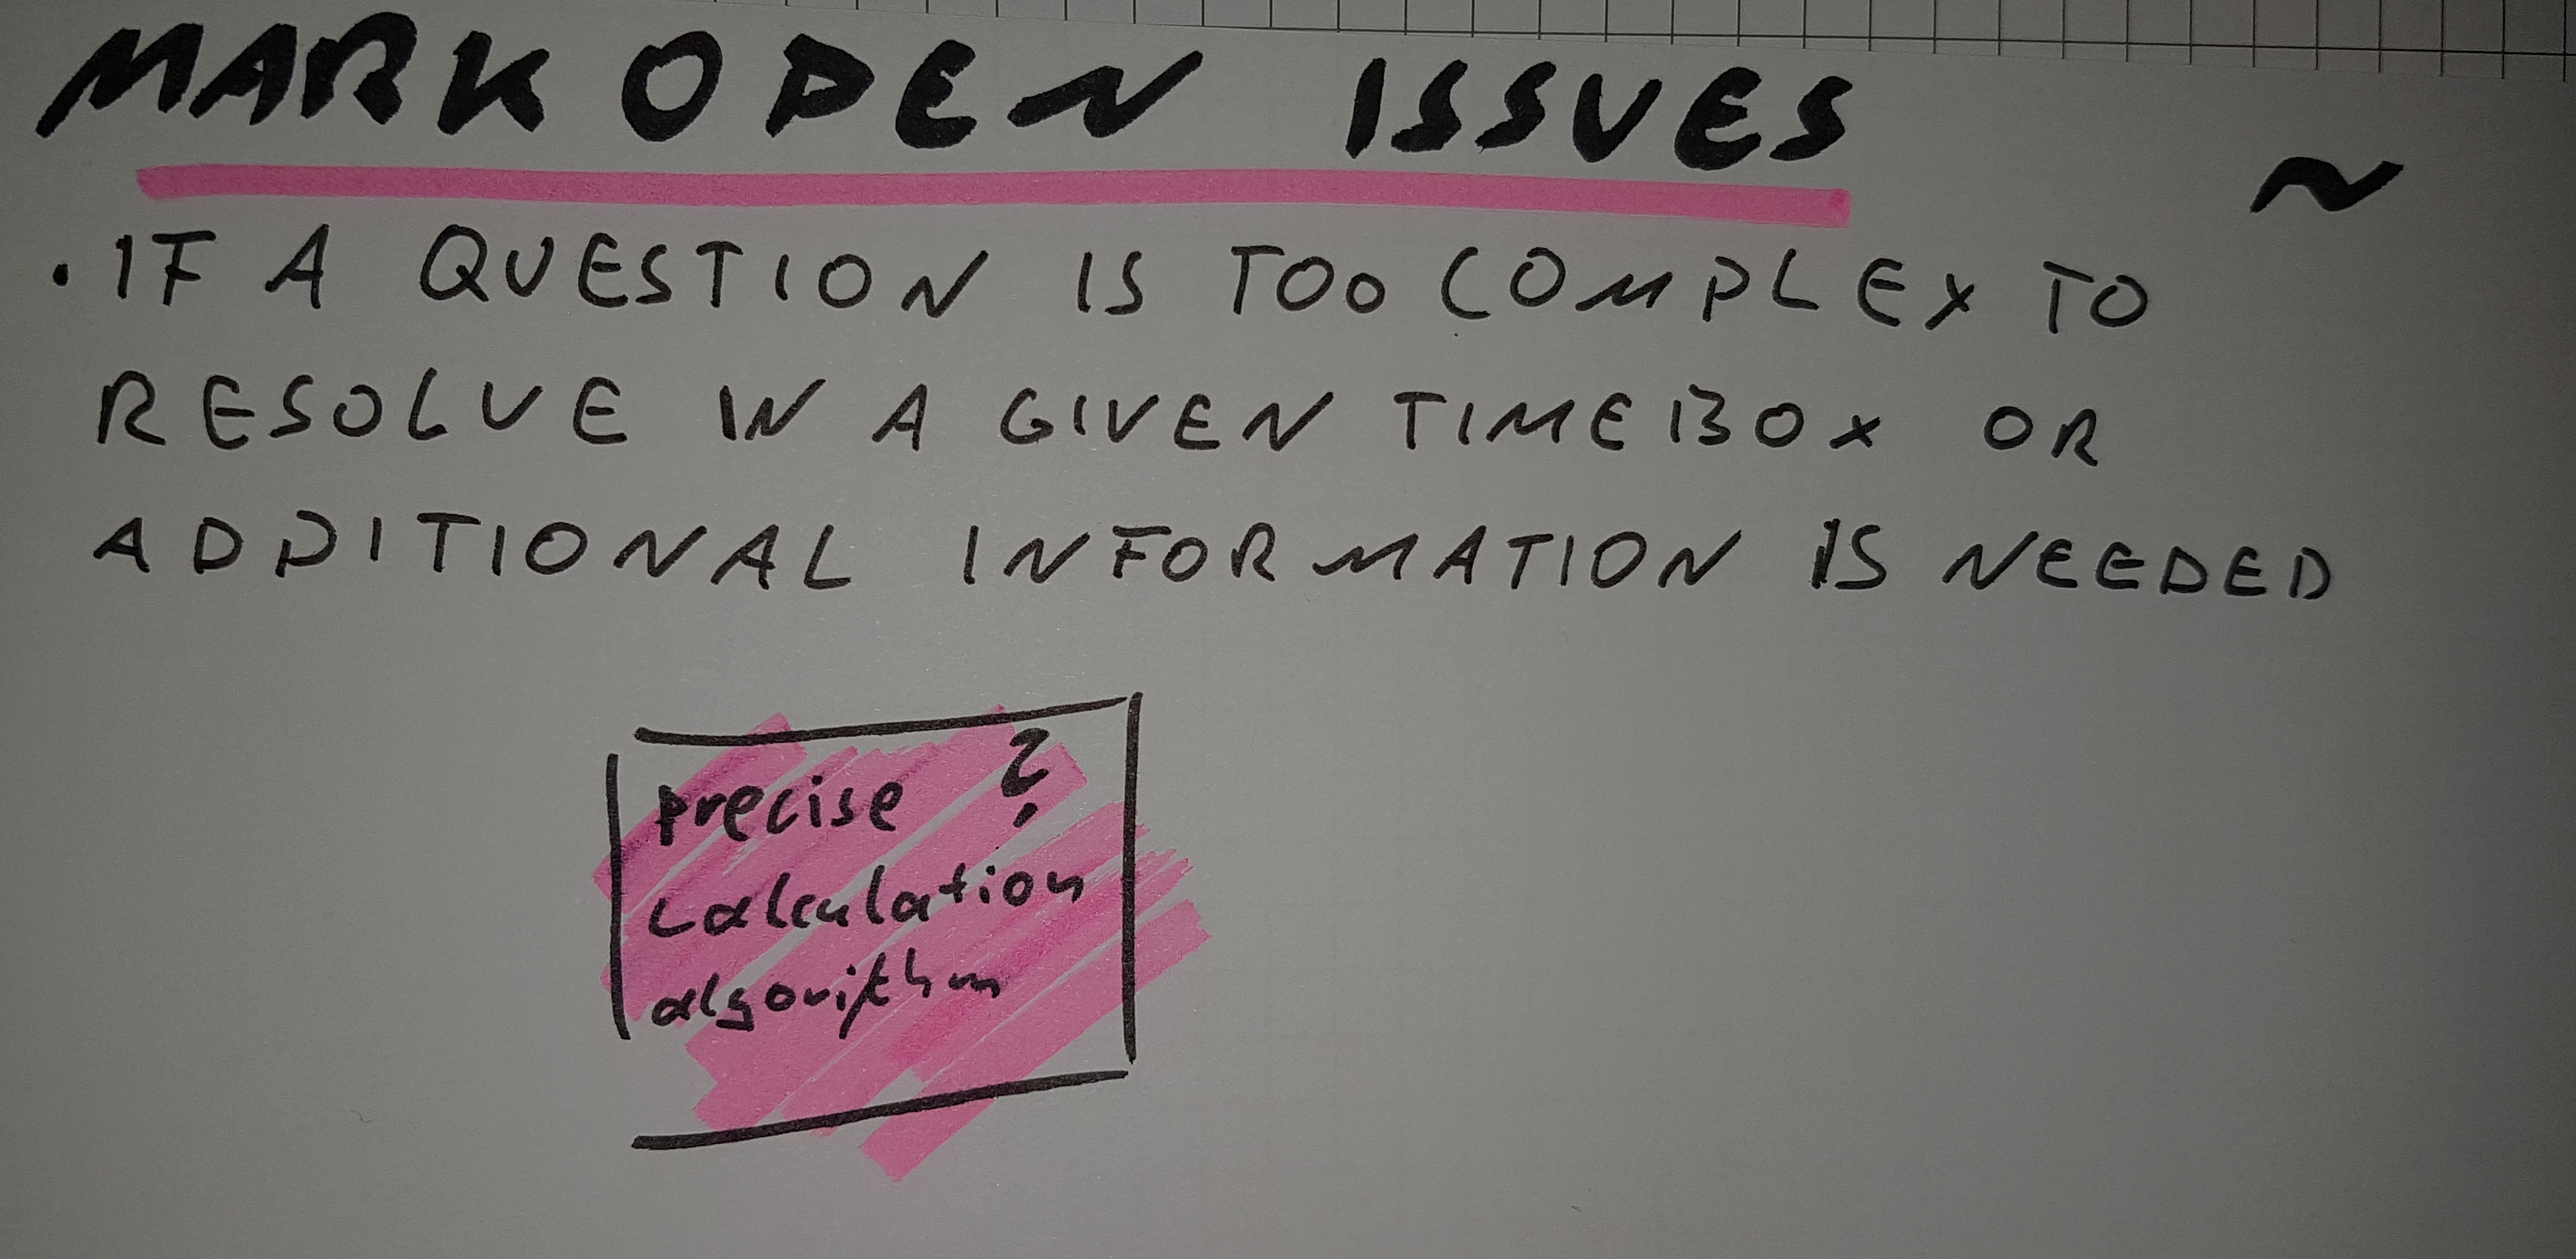 MARK OPEN ISSUES
~
. IF A QUESTION IS TOO COMPLEX TO
RESOLVE IN A GIVEN TIMEBOX OR
ADDITIONAL INFORMATION IS NEEDED
precise ?
calculation
algorithm